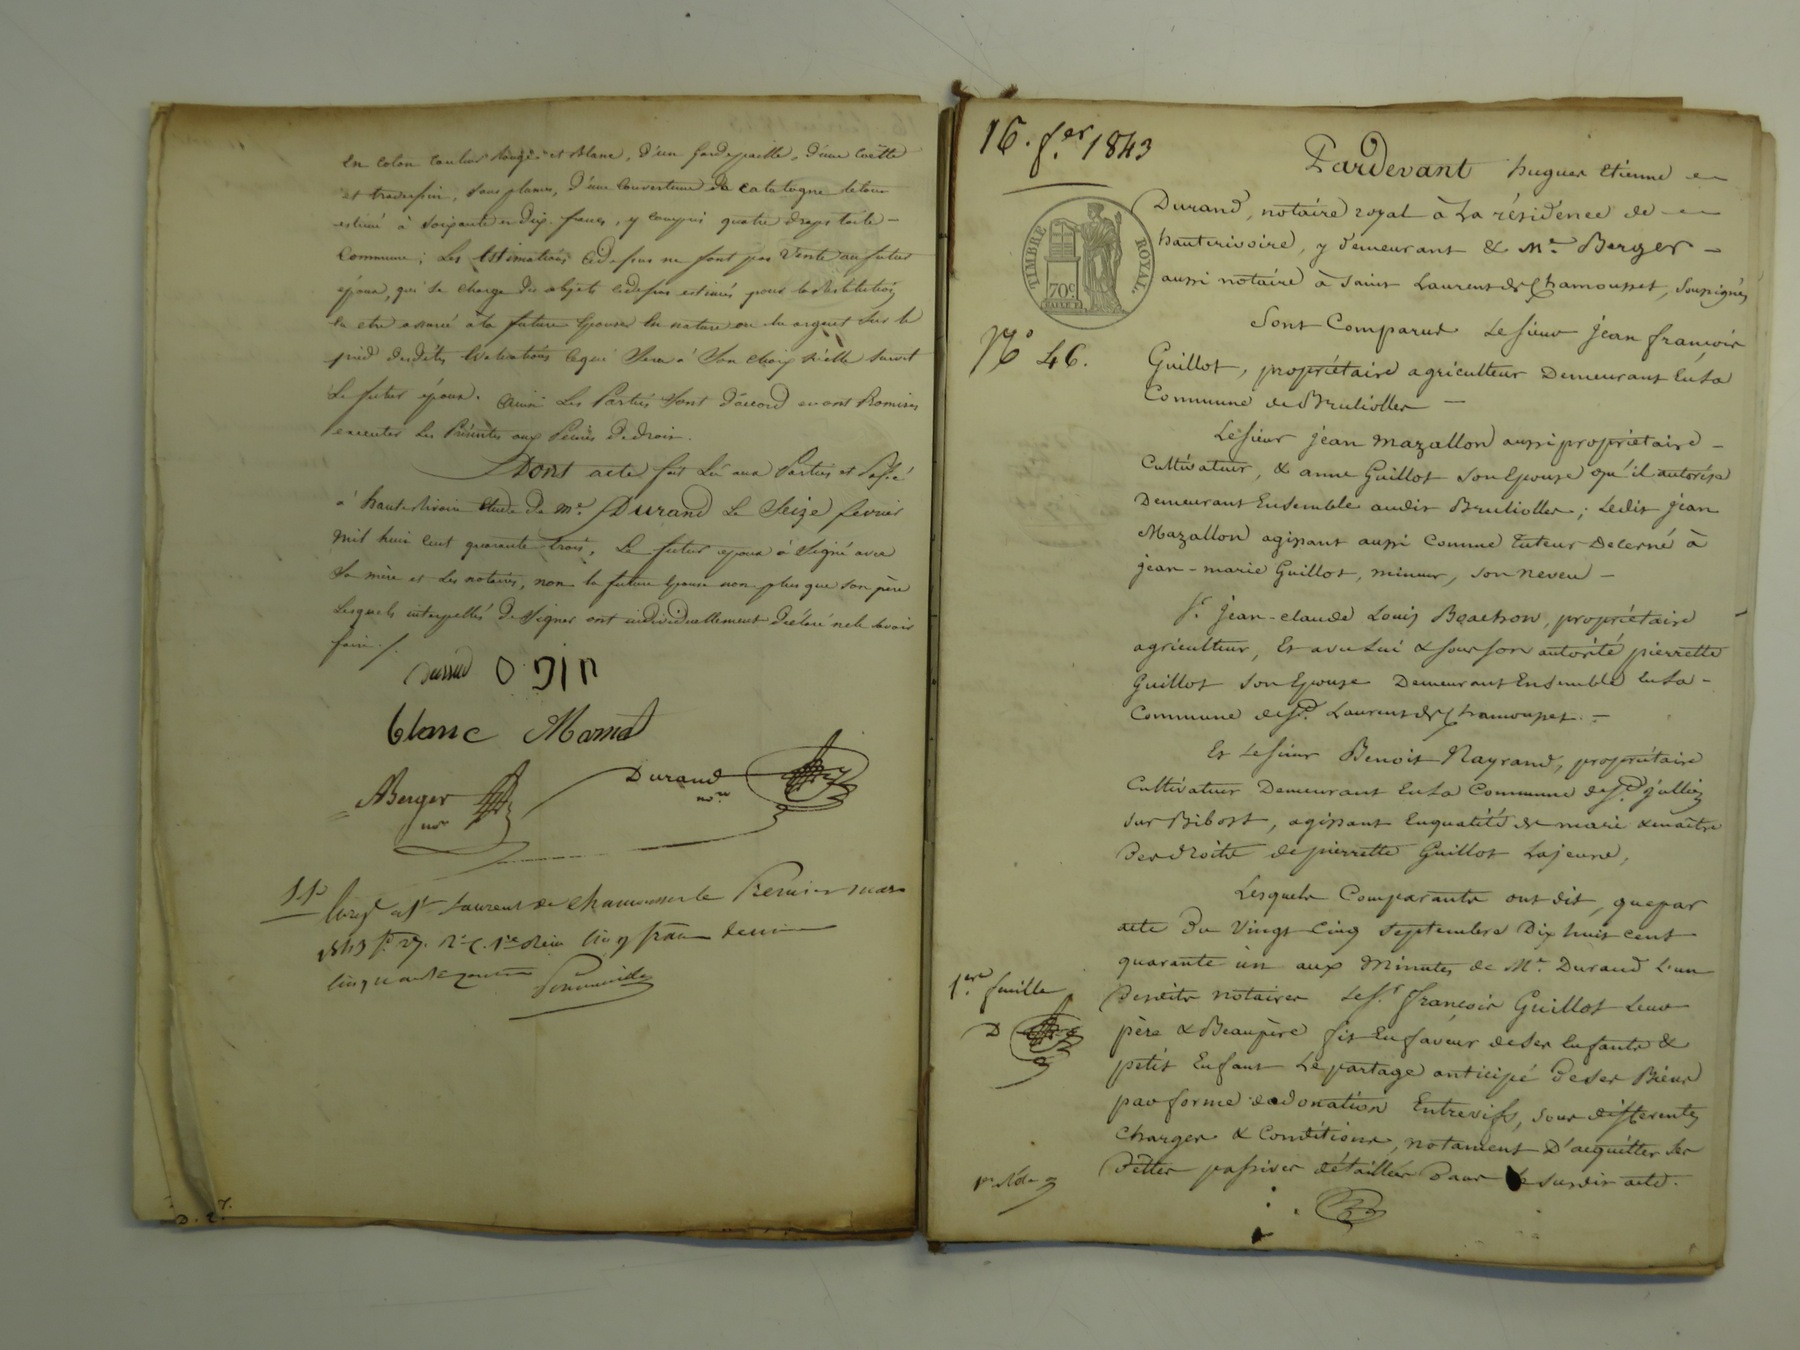 en coton couleur rouge et blanc, d'un gardepaille, d'une couëtte
et traverssin, sous plumes, d'une couverture de catalogne le tout
estimé à soixante en dix francs, y compris quatre draps toile
commune; Les Estimations cidessus ne font pas vente au futur
époux, qui se charge des objets cidessus estimés pour la restitution
en etre assuré à la future épouse en nature ou en argent sur le
pied desdites Evaluations ce qui sera à son choix si elle survit
le futur époux. Ainsi Les Parties sont d'accord en ont Promis
executer Les Présentes aux Peines de droit.
Dont acte fait Lu aux Parties et Passé
à hauterivoire étude de Me. Durand Le Seize fevrier
mil huit cent quarante trois, Le futur epoux à signé avec
sa mère et Les notaires, non la future épouse non plus que son père
Lesquels interpellés de Signer ont individuellement déclaré ne le savoir
faire ./.
blanc
ABerger
nre
Durand
nre
Enregt. à St. Laurent de chamousset le Premier mars
1843 fo. 27. cinq francs
cinquante centimes
16. fer. 1843
Pardevant hugues Etienne
Durand, notaire royal à La résidence de
hauterivoire, y demeurant & Me. Berger
TIMBRE ROYAL
70c.
aussi notaire à Saint Laurent de Chamousset, soussignés
Sont Comparus Le sieur jean françois
No. 46.
Guillot, propriétaire agriculteur Demeurant En La
Commune de Brulioller
Le sieur jean Mazallon aussi propriétaire
Cultivateur, & anne Guillot son Epouse qu'il autorise
Demeurant Ensemble audit Brulioller; Ledit jean
Mazallon agissant aussi comme tuteur Decerné à
jean-marie Guillot, mineur, son neveu
Sr. jean-claude Louis propriétaire
agriculteur, Et avec Lui & sous son autorité pierrette
Guillot son Epouse Demeurant Ensemble En La
Commune de St. Laurent de Chamousset.
Et Le sieur Benoit Nayrand, propriétaire
Cultivateur Demeurant En La Commune de St. jullien
sur Bibost, agissant En qualité de mari & maître
Des droits de pierrette Guillot La jeune,
Lesquels Comparants ont dit, que par
acte Du Vingt Cinq septembre Dix huit cent
quarante un aux Minutes de Me. Durand L'un
1ere. feuille
Desdits notaires Le Sr. françois Guillot Leur
D
père & Beaupère fit En faveur de ses Enfants &
petit Enfant Le partage anticipé De ses Biens
par forme de donation Entrevifs, sous differentes
charges & Conditions, notament D'acquitter les
Dettes passives détaillées Dans Le susdit acte.